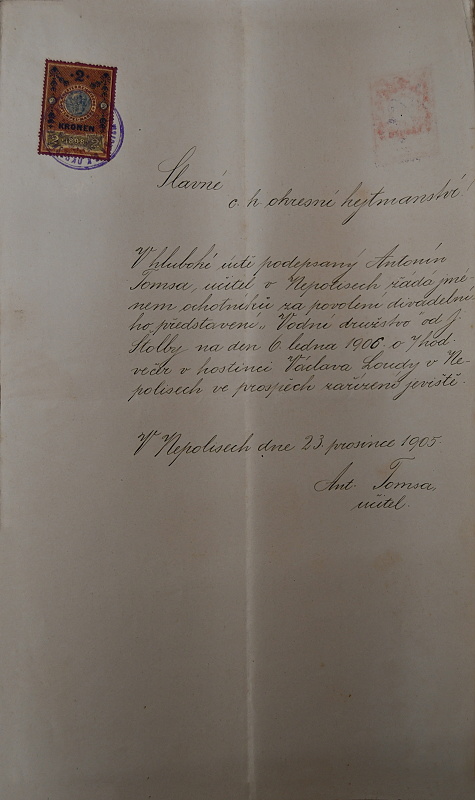 2
KRONEN
1898
Slavné
c. k. okresní hejtmanství!
V hluboké úctě podepsaný Antonín
Tomsa, učitel v Nepolisech žádá jmé-
nem ochotníků za povolení divadelní-
ho představení „Vodní družstvo" od J.
Štolby na den 6. ledna 1906 o 7 hod.
večer v hostinci Václava Loudy v Ne-
polisech ve prospěch zařízení jeviště.
V Nepolisech dne 23. prosince 1905.
Ant. Tomsa,
učitel.